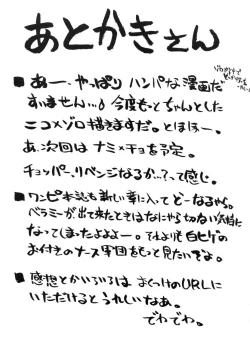 あとかきさん
■ あー、やっぱり ハンパな漫画だ
すいません…。今度もっとちゃんとした
ニコメゾロ描きますだ。とほほー。
あ、次回は ナミ×チョを予定。
チョッパー、リベンジなるか…?って感じ。
■ ワンピ本誌も新しい章に入って どーなるやら。
ベラミーが出て来たときはなにやら切ない気持に
なってしまったよよよー。それよりも白ヒゲの
お付きのナース軍団をもっと見たいぞよ。
■ 感想とかいろいろは おくつけのURLに
いただけると うれしいなあ。
でわでわ。